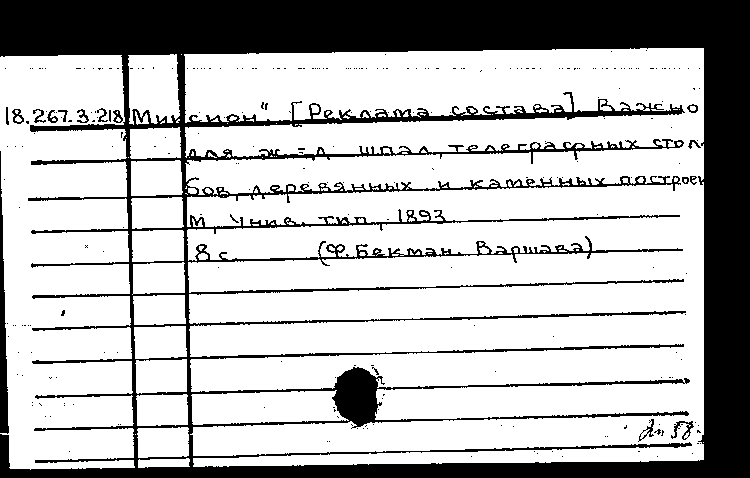 18.267.3.218 „Миксион". [Реклама состава]. Важно
для ж=д шпал, телеграфных стол-
бов, деревянных и каменных построек
М, Унив. тип., 1893.
8 с. (Ф. Бекман. Варшава)